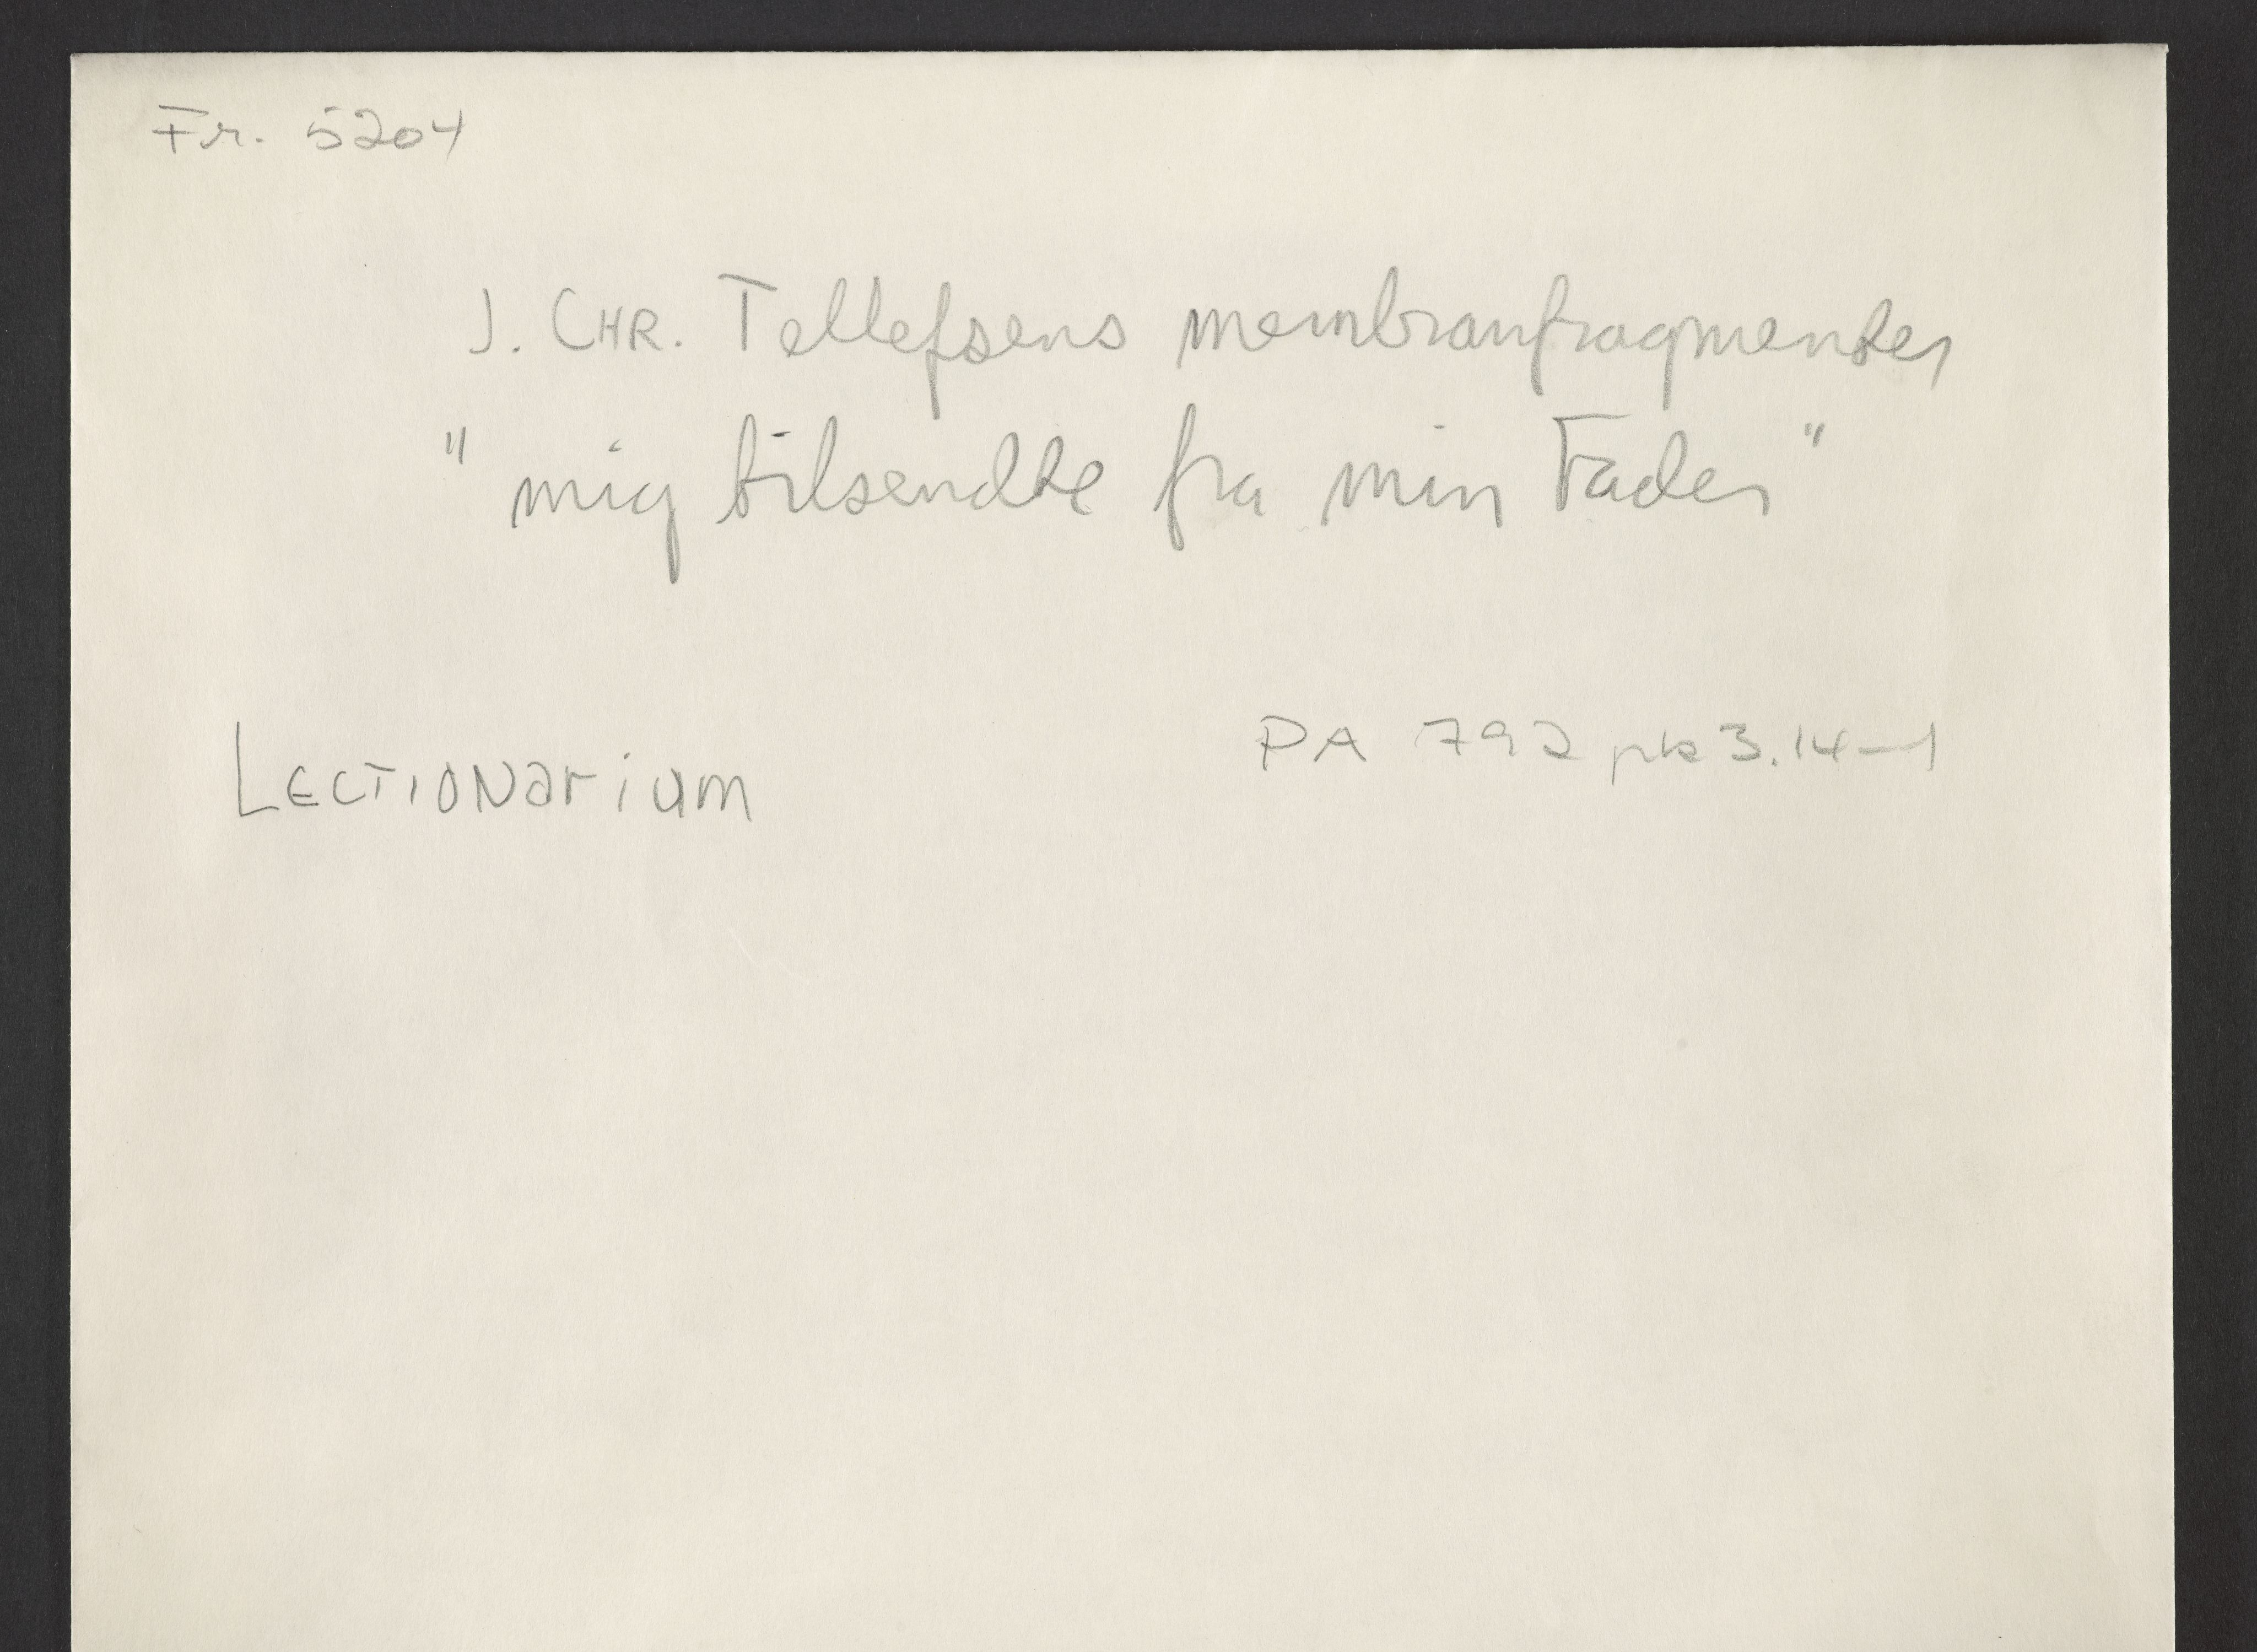 Fr. 5204
J. CHR. Tellefsens membranfragmenter
"mig tilsendte fra min Fader"
PA 792 pk 3.14-1
LECTIONarium